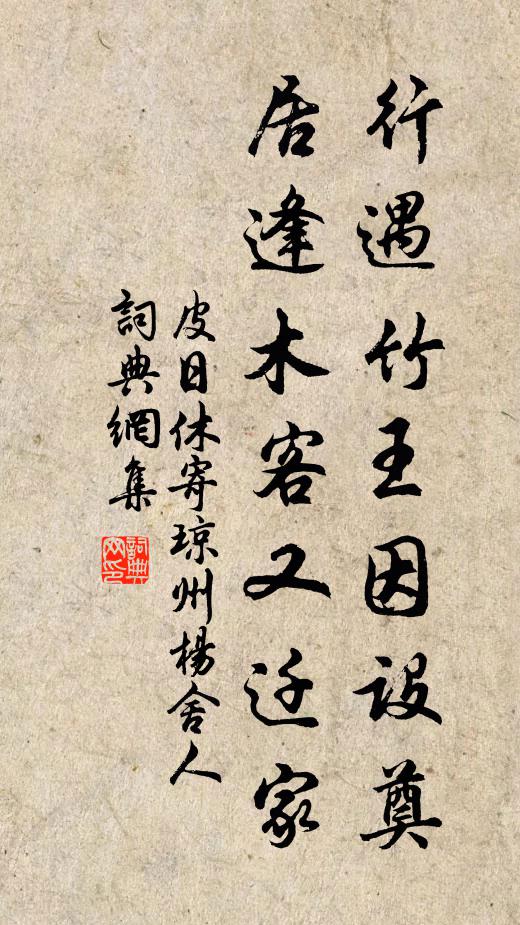 行遇竹王因设奠
居逢木客又迁家
皮日休寄琼州楊舍人
詞典網集
詞典
网印